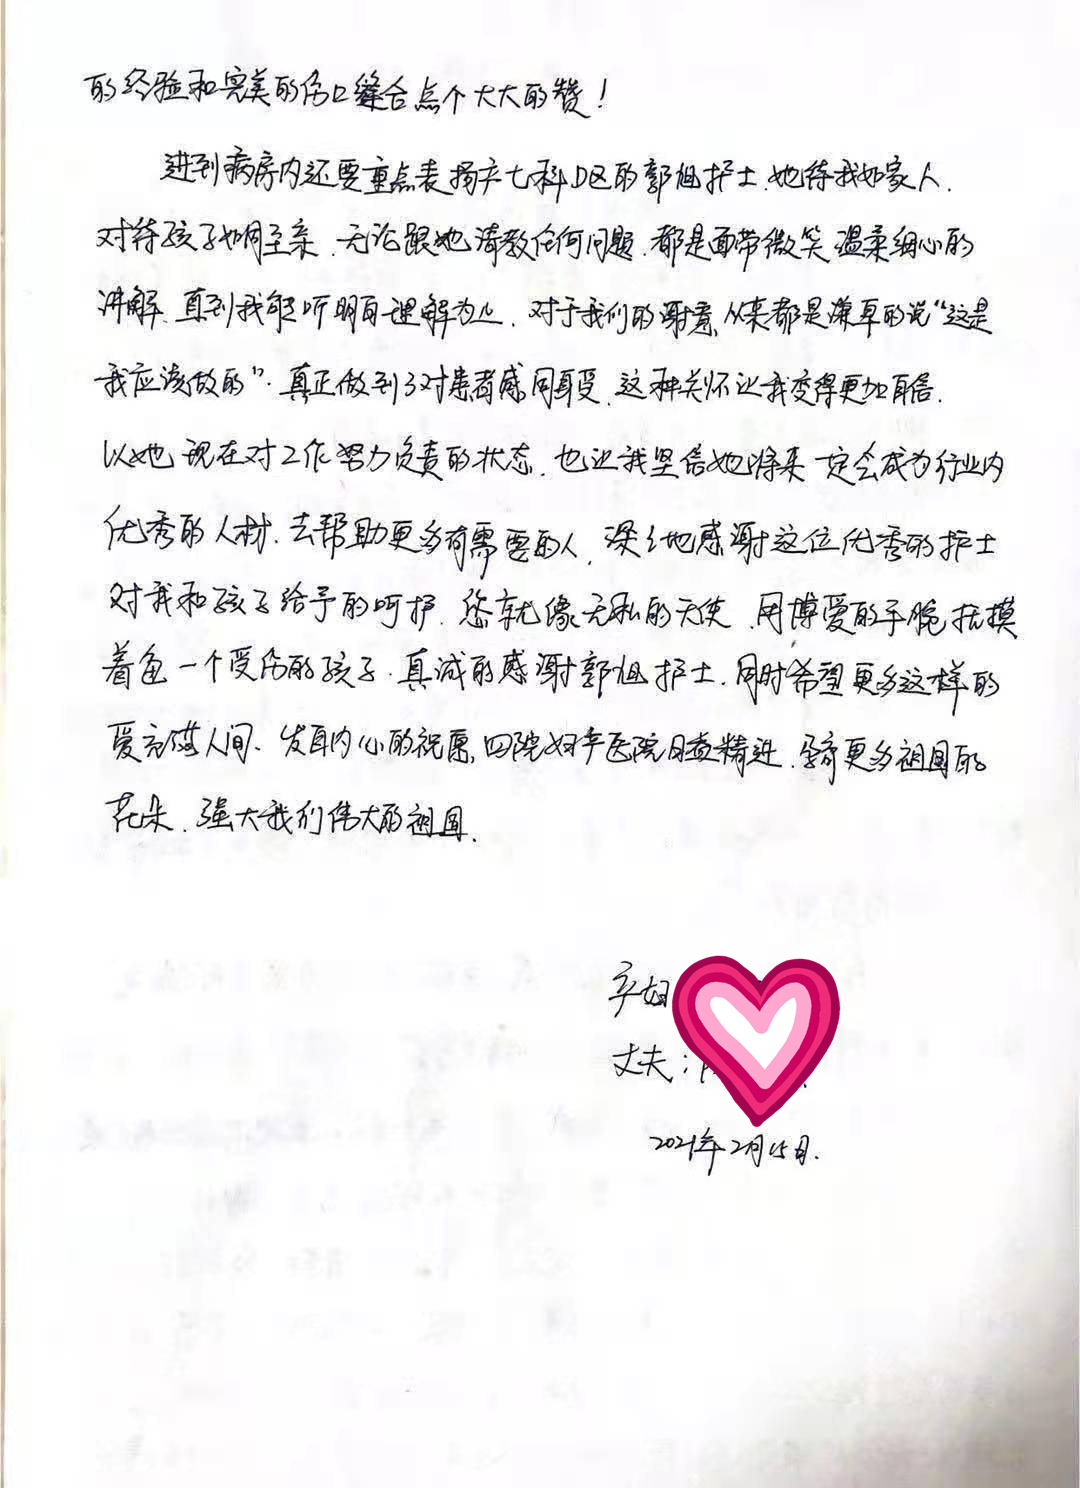 的经验和完美的伤口缝合点个大大的赞！
进到病房内还要重点表扬产七科D区的郭旭护士.她待我如家人.
对待孩子如同至亲.无论跟她请教任何问题.都是面带微笑温柔细心的
讲解.直到我能听明白理解为止.对于我们的谢意从来都是谦卑的说“这是
我应该做的”.真正做到了对患者感同身受.这种关怀让我变得更加自信.
以她现在对工作努力负责的状态.也让我坚信她将来一定会成为行业内
优秀的人材.去帮助更多有需要的人.深深地感谢这位优秀的护士
对我和孩子给予的呵护.您就像无私的天使.用博爱的手腕抚摸
着每一个受伤的孩子.真诚的感谢郭旭护士.同时希望更多这样的
爱充满人间.发自内心的祝愿四院妇产医院日益精进.孕育更多祖国的
花朵.强大我们伟大的祖国.
产妇
丈夫：
2021年2月15日.